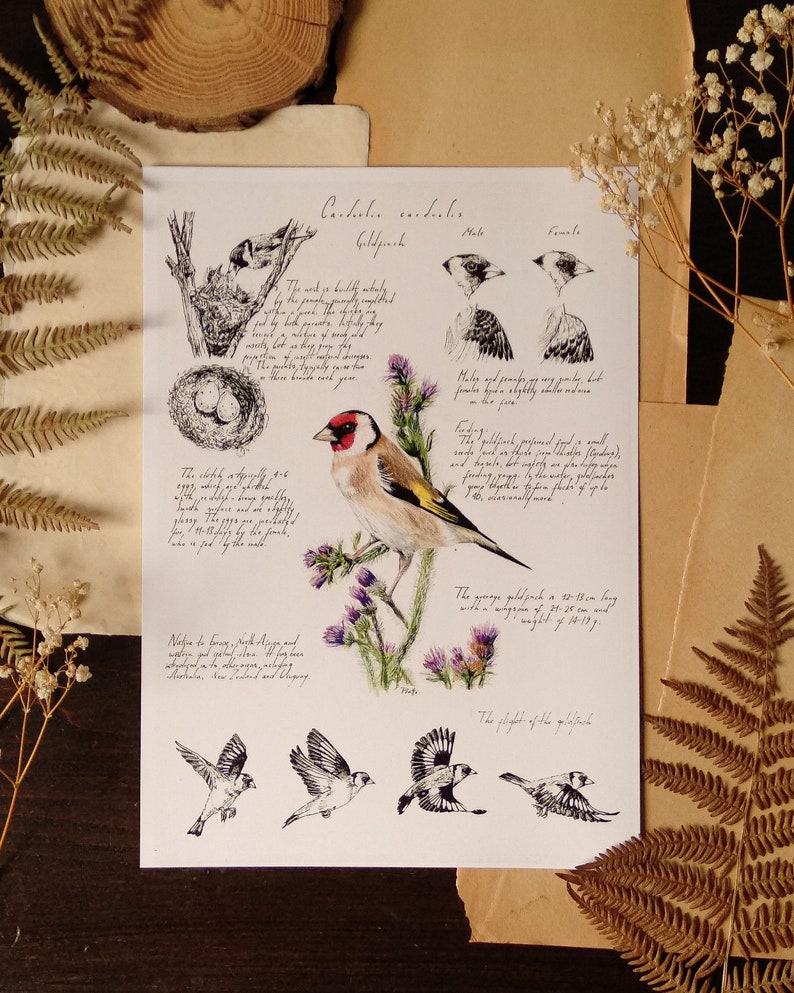 Carduelis carduelis
Goldfinch
Male
Female
The nest is built entirely
by the female, generally completed
within a week. The chicks are
fed by both parents. Initially they
receive a mixture of seeds and
insects, but as they grow the
proportion of insect material decreases.
The parents typically raise two
or three broods each year.
Males and females are very similar, but
females have a slightly smaller red area
on the face.
Feeding:
The goldfinch preferred food is small
seeds such as those from thistles (Carduus),
and teasels, but insects are also taken when
feeding young. In the winter, goldfinches
group together to form flocks of up to
40, occasionally more.
The clutch is typically 4-6
eggs, which are whitish
with reddish-brown speckles,
smooth surface and are slightly
glossy. The eggs are incubated
for 11-13 days by the female,
who is fed by the male.
The average goldfinch is 12-13 cm long
with a wingspan of 21-25 cm and
weight of 14-19 g.
Native to Europe, North Africa and
western and central Asia. It has been
introduced in to other areas, including
Australia, New Zealand and Uruguay.
The flight of the goldfinch